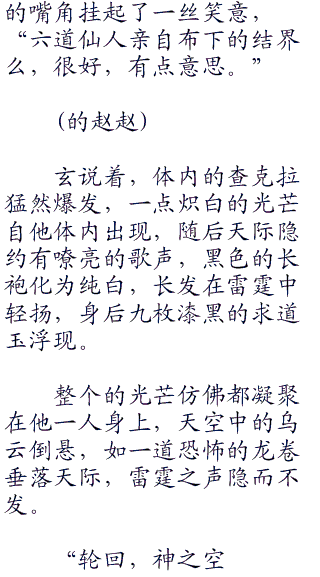 的嘴角挂起了一丝笑意，
“六道仙人亲自布下的结界
么，很好，有点意思。”
(的赵赵)
玄说着，体内的查克拉
猛然爆发，一点炽白的光芒
自他体内出现，随后天际隐
约有嘹亮的歌声，黑色的长
袍化为纯白，长发在雷霆中
轻扬，身后九枚漆黑的求道
玉浮现。
整个的光芒仿佛都凝聚
在他一人身上，天空中的乌
云倒悬，如一道恐怖的龙卷
垂落天际，雷霆之声隐而不
发。
“轮回，神之空